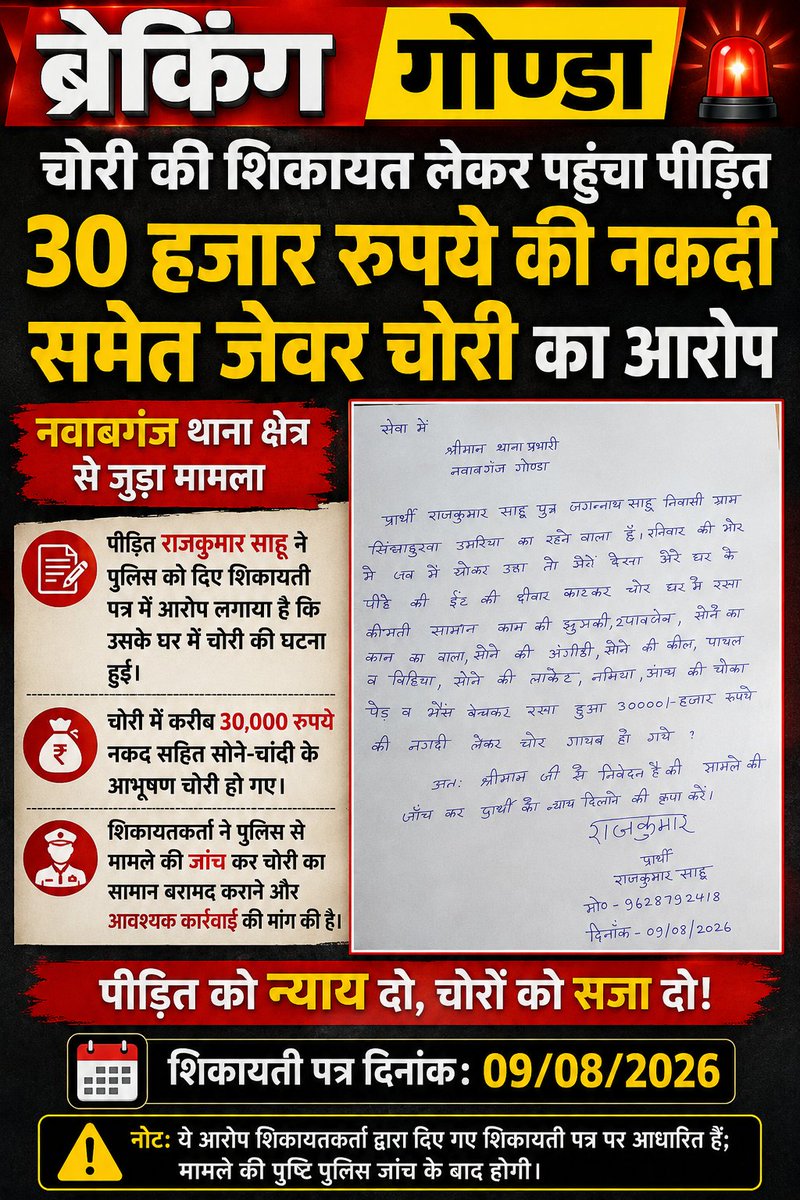 ब्रेकिंग गोण्डा
चोरी की शिकायत लेकर पहुंचा पीड़ित
30 हजार रुपये की नकदी
समेत जेवर चोरी का आरोप
नवाबगंज थाना क्षेत्र
से जुड़ा मामला
पीड़ित राजकुमार साहू ने
पुलिस को दिए शिकायती
पत्र में आरोप लगाया है कि
उसके घर में चोरी की घटना
हुई।
चोरी में करीब 30,000 रुपये
नकद सहित सोने-चांदी के
आभूषण चोरी हो गए।
शिकायतकर्ता ने पुलिस से
मामले की जांच कर चोरी का
सामान बरामद कराने और
आवश्यक कार्रवाई की मांग की है।
सेवा में
श्रीमान थाना प्रभारी
नवाबगंज गोण्डा
प्रार्थी राजकुमार साहू पुत्र जगन्नाथ साहू निवासी ग्राम
उमरिया का रहने वाला है। रनिवार की भोर
मे जब में उठा तो देखा घर के
की ईंट की दीवार काटकर चोर घर में रखा
कीमती सामान काम की झुमकी, 2पावजेब, सोने का
कान का वाला, सोने की अंगीठी, सोने की कील, पायल
व विहिया, सोने की लाकेट, नमिया, की चोका
पेड़ व भैंस बेचकर रखा हुआ 30000/-हजार रूपये
की नगदी लेकर चोर गायब हो गये ?
अतः श्रीमान जी से निवेदन है की सामले की
जाँच कर प्रार्थी को न्याय दिलाने की कृपा करें।
राजकुमार
प्रार्थी
राजकुमार साहू
मो० - 9628792418
दिनाँक - 09/08/2026
पीड़ित को न्याय दो, चोरों को सजा दो!
शिकायती पत्र दिनांक: 09/08/2026
नोट: ये आरोप शिकायतकर्ता द्वारा दिए गए शिकायती पत्र पर आधारित हैं;
मामले की पुष्टि पुलिस जांच के बाद होगी।